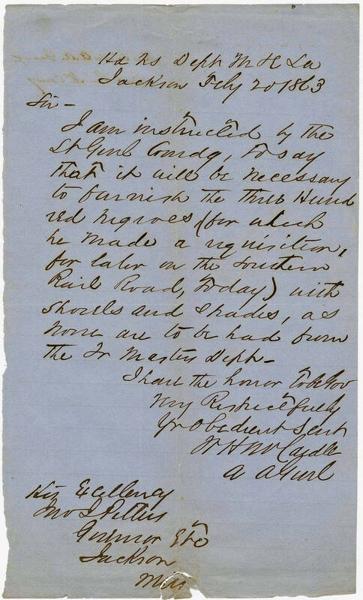 Hd Qs Dept M & E La
Jackson Feby 20 1863
Sir -
I am instructed by the
Lt Genl Comdg, to say
that it will be necessary
to furnish the three Hund
red Negroes (for which
he made a requisition,
for labor on the Southern
Rail Road, to day) with
Shovels and Spades, as
none are to be had from
the Qr Masters Dept -
I have the honor to be Gov
Very Respectfully
Yr Obedient Servt
W H McCardle
A A Genl
His Excellency
Jno J Pettus
Governor Etc
Jackson
Miss